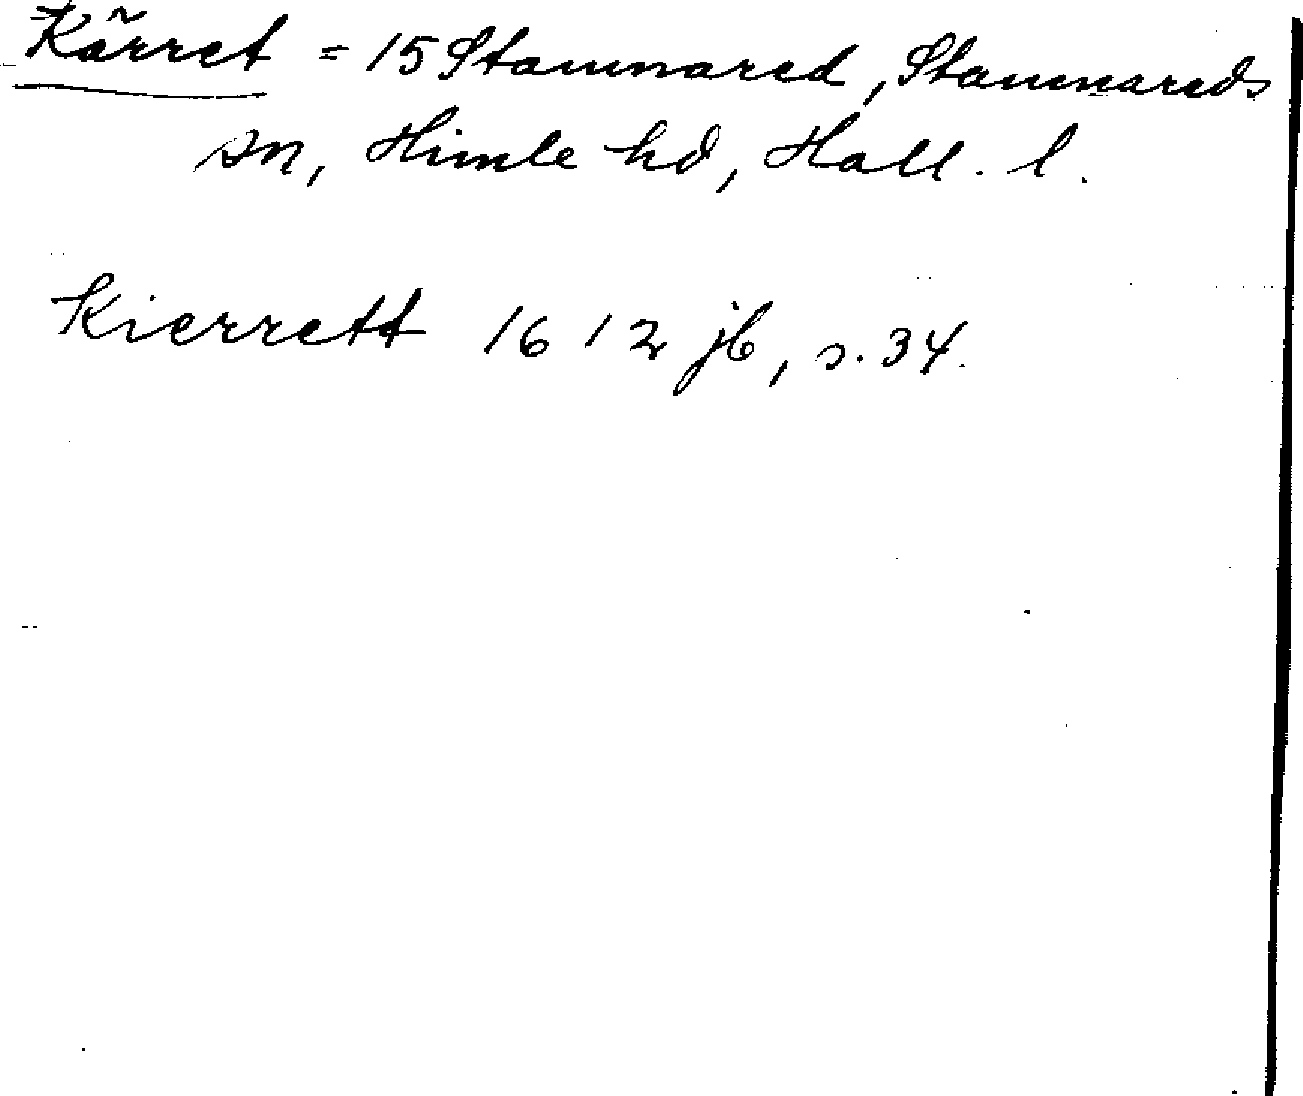 Kärret = 15 Stamnared, Stamnareds
sn, Himle hd, Hall. l.
Kierrett 1612 jb, s. 34.